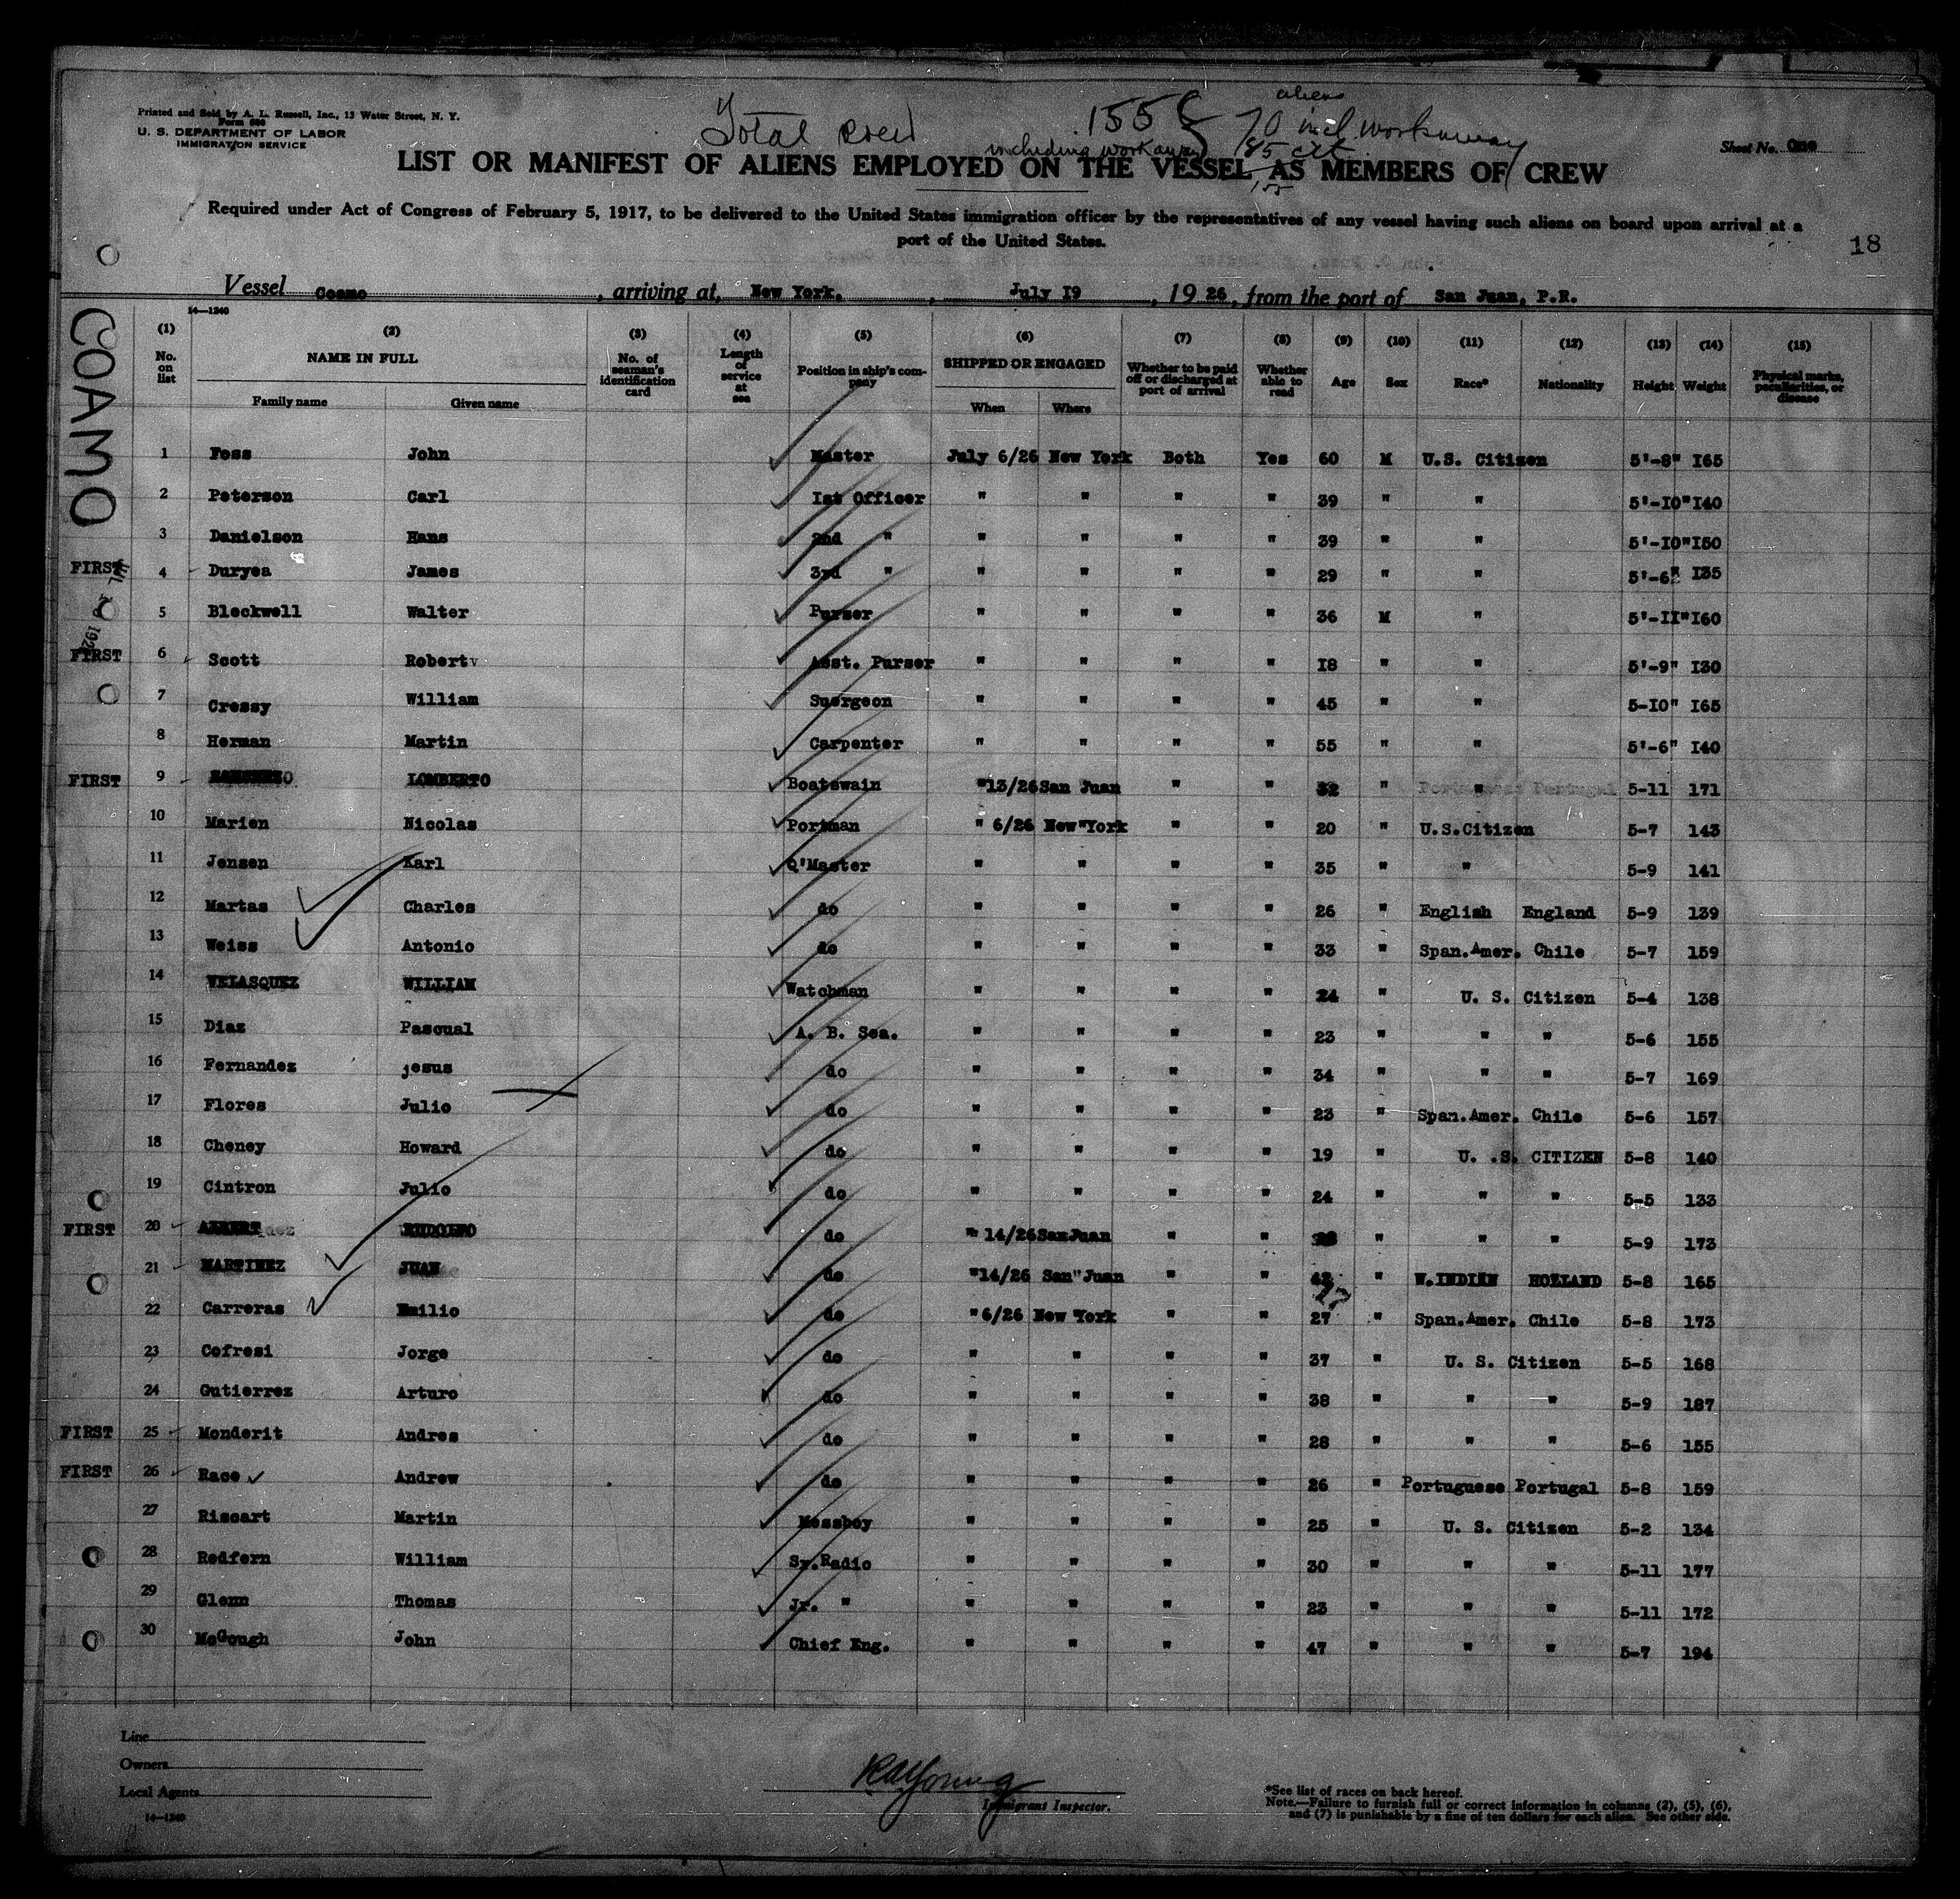 Printed and Sold by A. L. Russell, Inc., 13 Water Street, N. Y.
Form 686
U. S. DEPARTMENT OF LABOR
IMMIGRATION SERVICE
Total crew 155 aliens
including workaways 70 incl workaway
85 cit
155
Sheet No. One
LIST OR MANIFEST OF ALIENS EMPLOYED ON THE VESSEL AS MEMBERS OF CREW
Required under Act of Congress of February 5, 1917, to be delivered to the United States immigration officer by the representatives of any vessel having such aliens on board upon arrival at a
port of the United States.
18
Vessel Coamo, arriving at, New York, July 19, 1926, from the port of San Juan, P.R.
COAMO
14—1240
(1) (2) (3) (4) (5) (6) (7) (8) (9) (10) (11) (12) (13) (14) (15)
No. on list NAME IN FULL Family name Given name No. of seaman's identification card Length of service at sea Position in ship's company SHIPPED OR ENGAGED When Where Whether to be paid off or discharged at port of arrival Whether able to read Age Sex Race* Nationality Height Weight Physical marks, peculiarities, or disease
1 Foss John Master July 6/26 New York Both Yes 60 M U.S. Citizen 5'-8" 165
2 Peterson Carl 1st Officer " " " " 39 " " 5'-10" 140
3 Danielson Hans 2nd " " " " " 39 " " 5'-10" 150
FIRST 4 Duryea James 3rd " " " " " 29 " " 5'-6" 135
5 Bleckwell Walter Purser " " " " 36 M " 5'-11" 160
FIRST 6 Scott Robert Asst. Purser " " " " 18 " " 5'-9" 130
7 Cressy William Suergeon " " " " 45 " " 5-10" 165
8 Herman Martin Carpenter " " " " 55 " " 5'-6" 140
FIRST 9 LOMBERTO Boatswain "13/26 San Juan " " 32 " " 5-11 171
10 Marien Nicolas Portman " 6/26 New York " " 20 " U.S.Citizen 5-7 143
11 Jensen Karl Q'Master " " " " 35 " " 5-9 141
12 Martas Charles do " " " " 26 " English England 5-9 139
13 Weiss Antonio do " " " " 33 " Span.Amer. Chile 5-7 159
14 VELASQUEZ WILLIAM Watchman " " " " 24 " U. S. Citizen 5-4 138
15 Diaz Pascual A. B. Sea. " " " " 23 " " " 5-6 155
16 Fernandez jesus do " " " " 34 " " " 5-7 169
17 Flores Julio do " " " " 23 " Span.Amer. Chile 5-6 157
18 Cheney Howard do " " " " 19 " U. .S. CITIZEN 5-8 140
19 Cintron Julio do " " " " 24 " " " 5-5 133
FIRST 20 ALBERT RUDOLFO do " 14/26 San Juan " " " " " 5-9 173
21 MARTINEZ JUAN do "14/26 San" Juan " " 42 " W.INDIAN HOLLAND 5-8 165
22 Carreras Emilio do " 6/26 New York " " 27 " Span.Amer. Chile 5-8 173
23 Cofresi Jorge do " " " " 37 " U. S. Citizen 5-5 168
24 Gutierrez Arturo do " " " " 38 " " " 5-9 187
FIRST 25 Monderit Andres do " " " " 28 " " " 5-6 155
FIRST 26 Race Andrew do " " " " 26 " Portuguese Portugal 5-8 159
27 Riscart Martin Messboy " " " " 25 " U. S. Citizen 5-2 134
28 Redfern William Sr.Radio " " " " 30 " " " 5-11 177
29 Glenn Thomas Jr. " " " " " 23 " " " 5-11 172
30 McGough John Chief Eng. " " " " 47 " " " 5-7 194
Line
Owners
Local Agents
14—1240
RAYoung
Immigrant Inspector.
*See list of races on back hereof.
Note.—Failure to furnish full or correct information in columns (2), (5), (6),
and (7) is punishable by a fine of ten dollars for each alien. See other side.